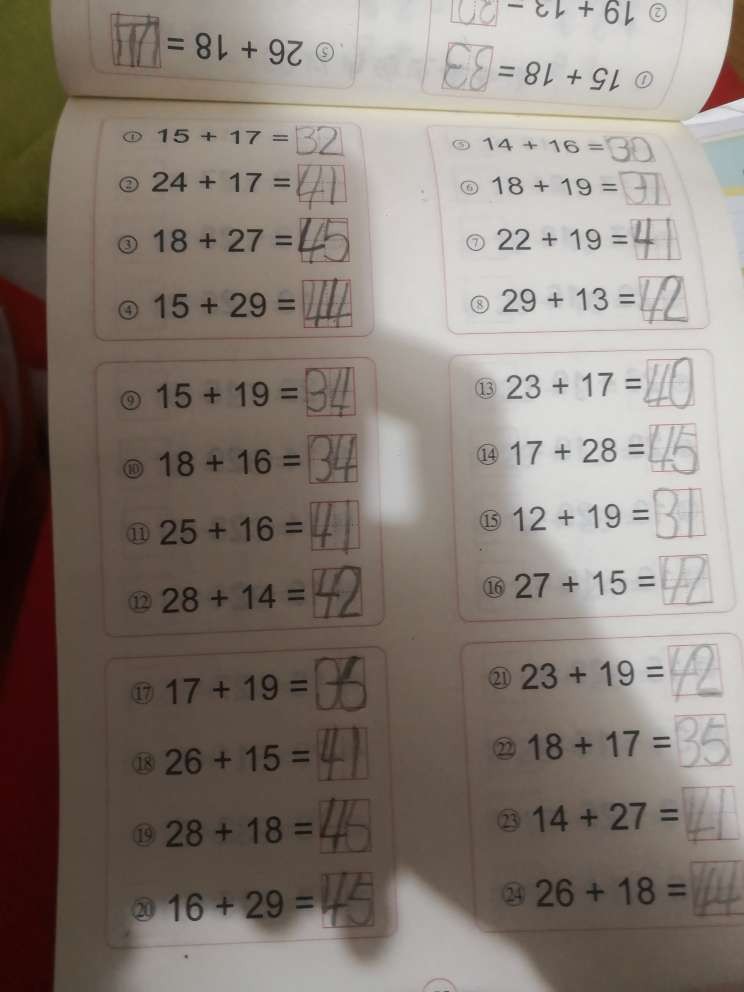 ② 19 + 13 =
⑤ 26 + 18 = 44
① 15 + 18 = 33
① 15 + 17 = 32
② 24 + 17 = 41
③ 18 + 27 = 45
④ 15 + 29 = 44
⑤ 14 + 16 = 30
⑥ 18 + 19 = 37
⑦ 22 + 19 = 41
⑧ 29 + 13 = 42
⑨ 15 + 19 = 34
⑩ 18 + 16 = 34
⑪ 25 + 16 = 41
⑫ 28 + 14 = 42
⑬ 23 + 17 = 40
⑭ 17 + 28 = 45
⑮ 12 + 19 = 31
⑯ 27 + 15 = 42
⑰ 17 + 19 = 36
⑱ 26 + 15 = 41
⑲ 28 + 18 =
⑳ 16 + 29 = 45
㉑ 23 + 19 = 42
㉒ 18 + 17 = 35
㉓ 14 + 27 = 41
㉔ 26 + 18 = 44